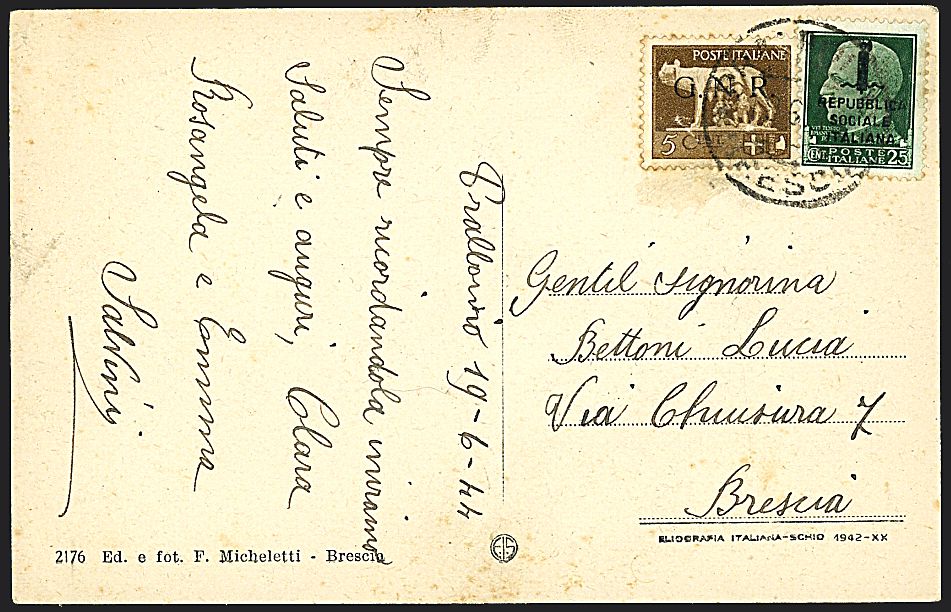 Trallorio 19-6-44
Sempre ricordandola inviamo
Saluti e auguri, Clara
Rosangela e Emma
Salvini
POSTE ITALIANE
G. N. R.
5 CENT
REPUBBLICA
SOCIALE
ITALIANA
CENT. POSTE ITALIANE 25
Gentil Signorina
Bettoni Lucia
Via Chiusura 7
Brescia
ELIOGRAFIA ITALIANA-SCHIO 1942-XX
2176 Ed. e fot. F. Micheletti - Brescia